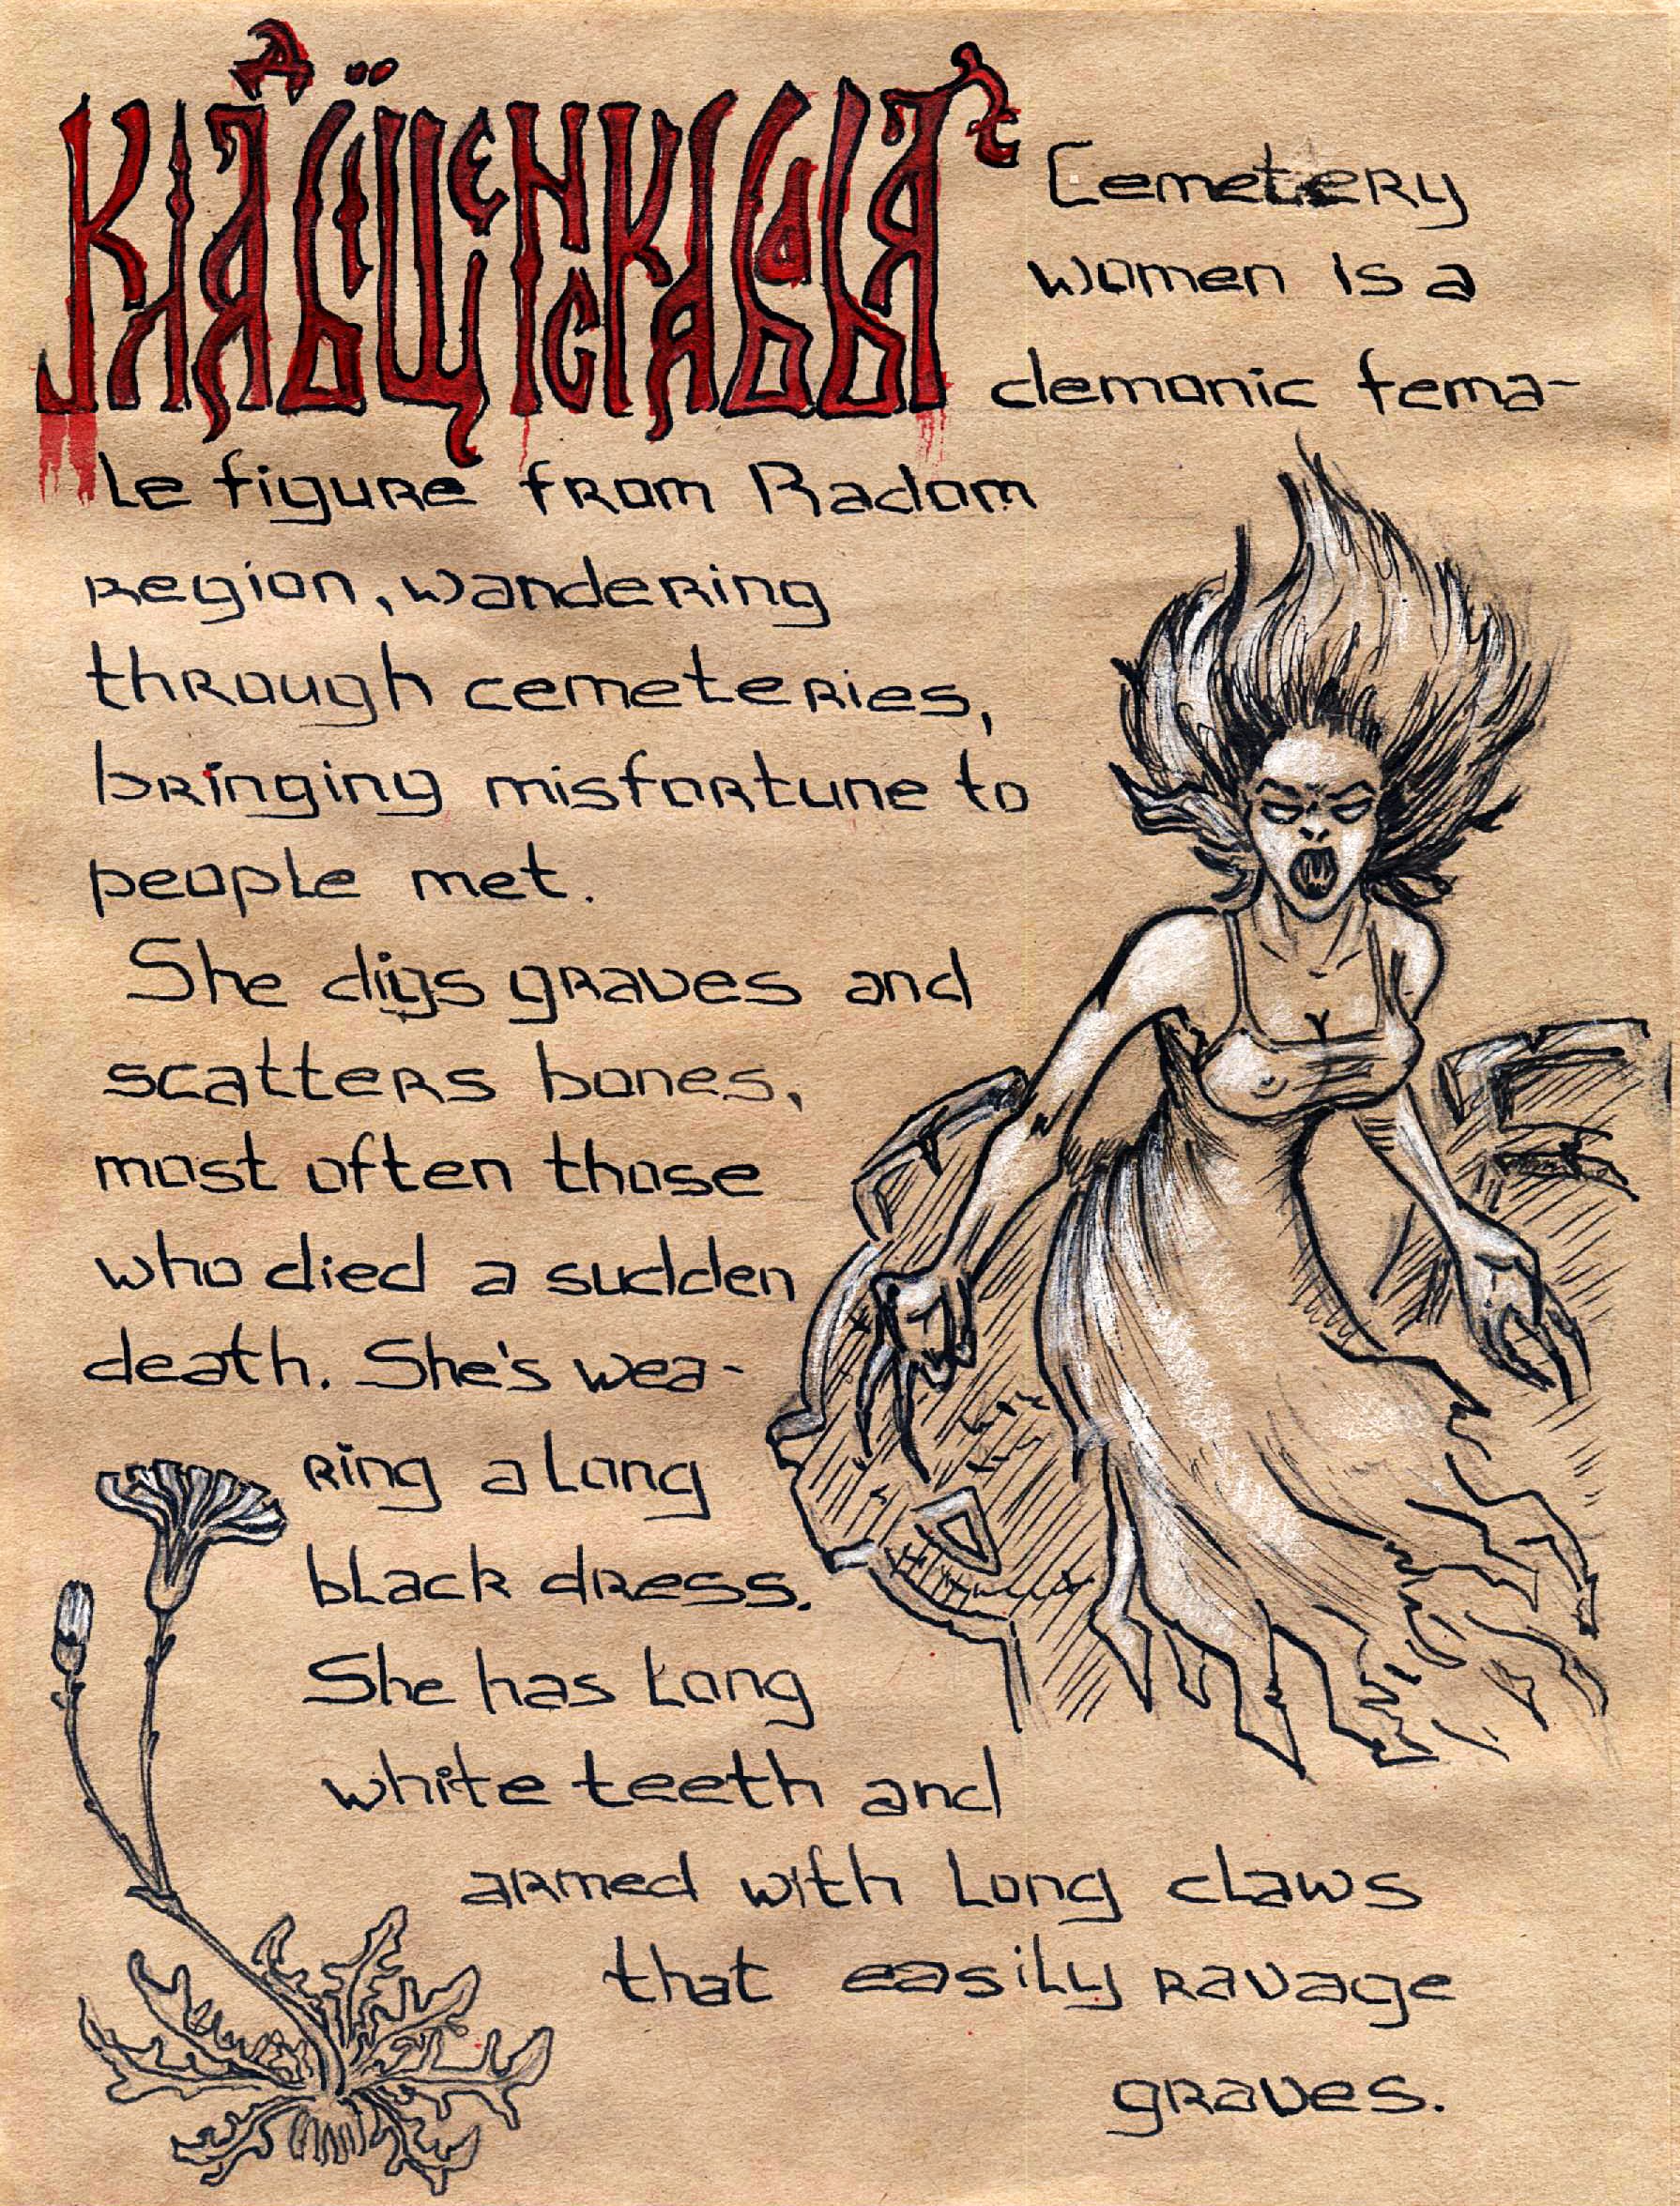 Cemetery
women is a
demonic fema-
le figure from Radom
region, wandering
through cemeteries,
bringing misfortune to
people met.
She digs graves and
scatters bones,
most often those
who died a sudden
death. She's wea-
ring a long
black dress.
She has long
white teeth and
armed with long claws
that easily ravage
graves.